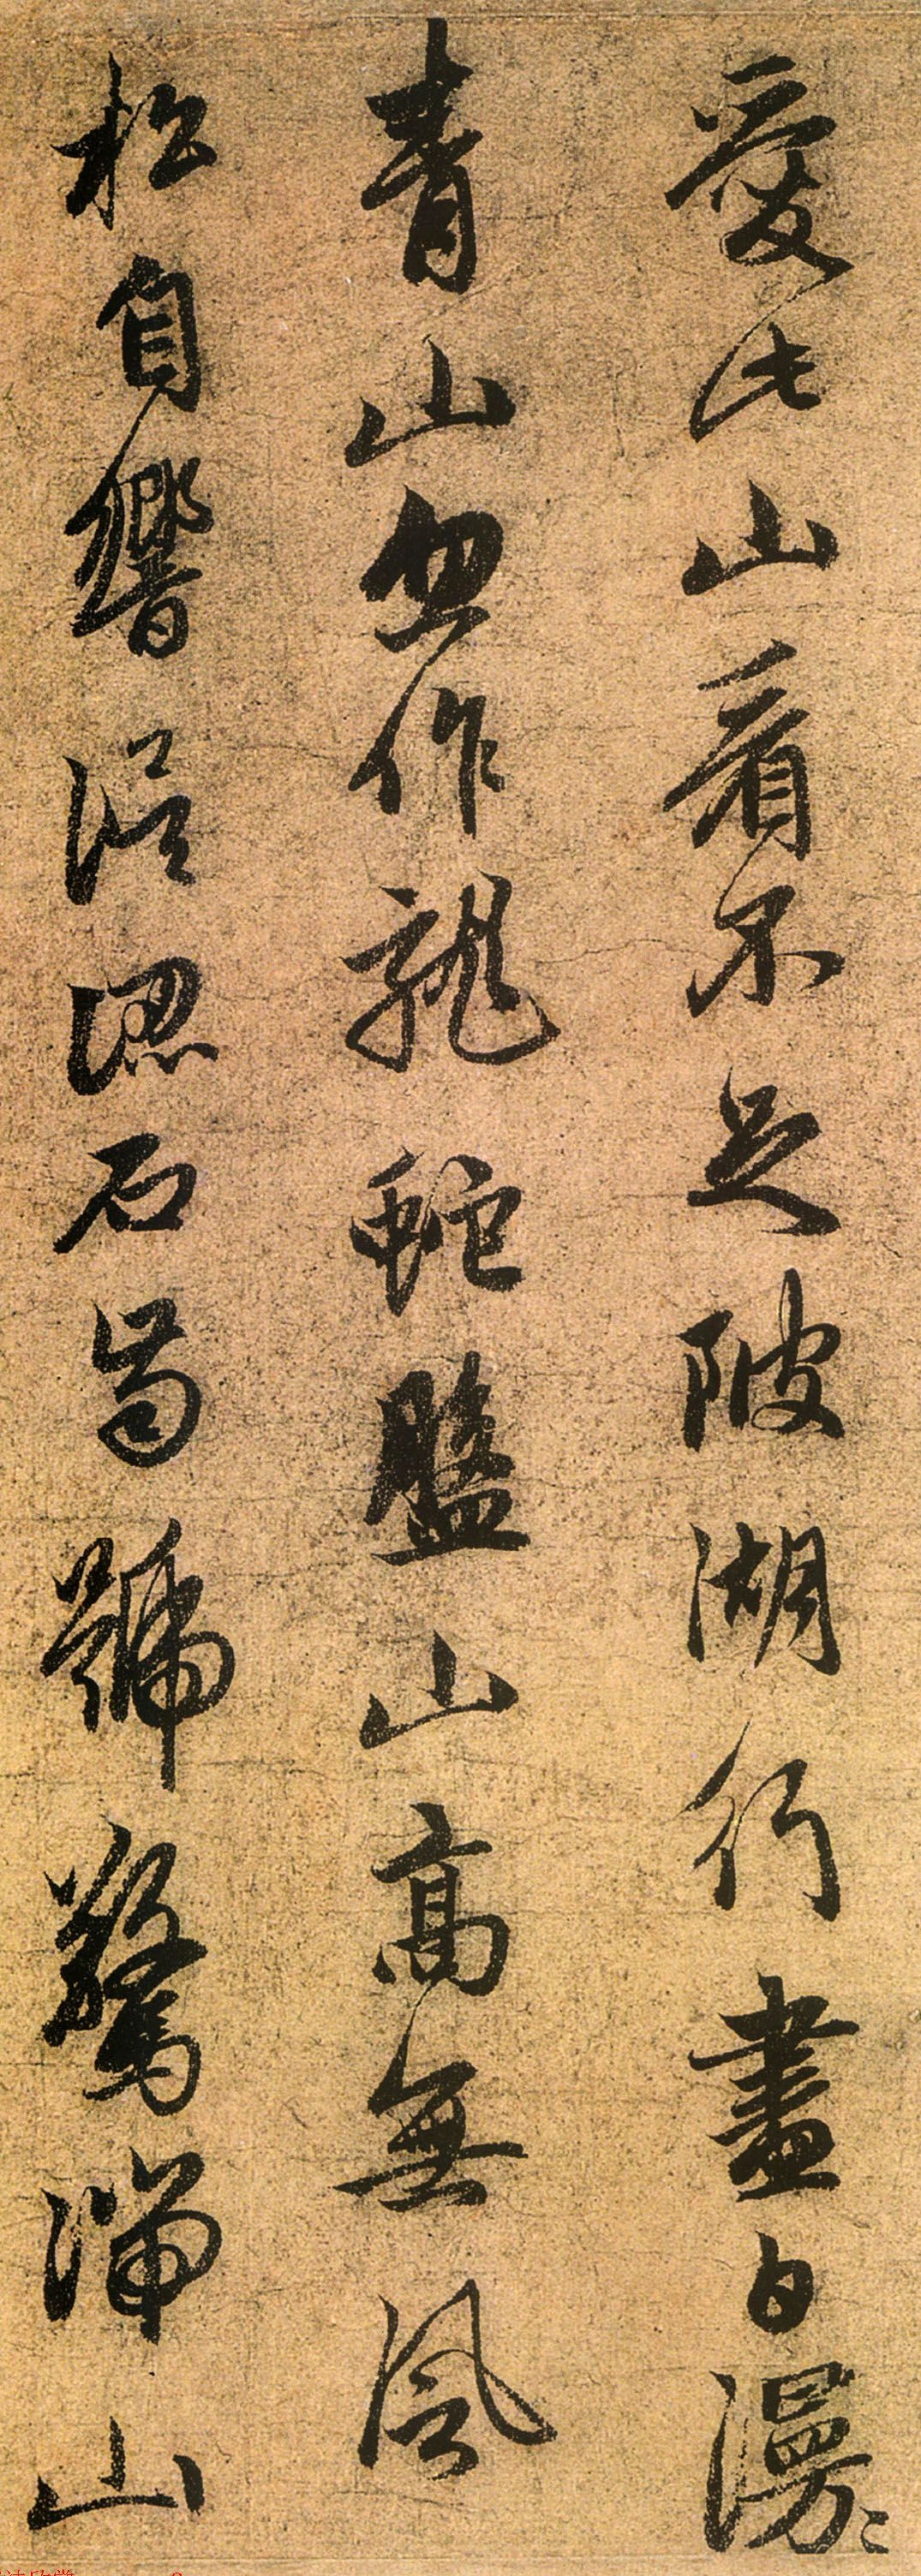 愛此山看不足陂湖行盡白漫〻
青山忽作龍蛇盤山高無風
松自響誤認石齒號驚湍山